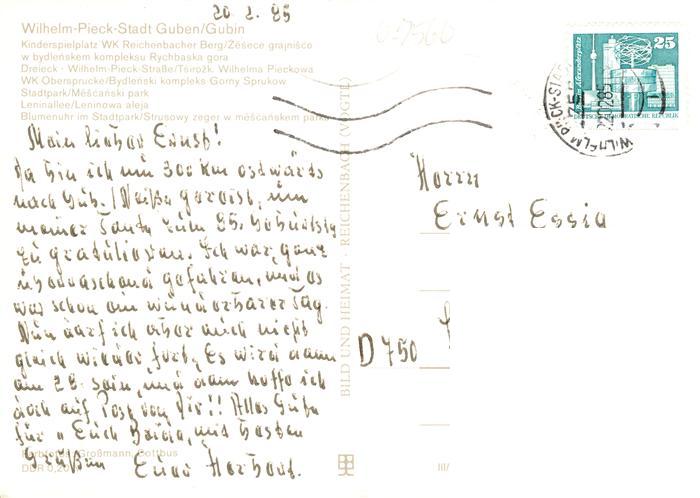 20.2.85
Wilhelm-Pieck-Stadt Guben/Gubin
Kinderspielplatz WK Reichenbacher Berg/Zěšece grajnišćo
w bydleńskem kompleksu Rychbaska gora
Dreieck · Wilhelm-Pieck-Straße/Tśirožk. Wilhelma Pieckowa
WK Obersprucke/Bydleński kompleks Gorny Sprukow
Stadtpark/Měšćański park
Leninallee/Leninowa aleja
Blumenuhr im Stadtpark/Strusowy zeger w měšćańskem parku
Mein lieber Ernst!
Da bin ich nun 300 km ostwärts
nach Gub. /Neiße gereist, um
meiner Tante zum 85. Geburtstg
zu gratulieren. Ich war ganz
überraschend gefahren, und es
war schon ein wunderbarer Tag.
Nun darf ich aber auch nicht
gleich wieder fort. Es wird dann
am 28. sein, und dann hoffe ich
auch auf Post von Dir!! Alles Gute
für Euch Beide, mit besten
Grüßen
Farbfotos: Großmann, Cottbus
DDR 0,20
BILD UND HEIMAT · REICHENBACH (VOGTL)
III/
25
Berlin, Alexanderplatz
DEUTSCHE DEMOKRATISCHE REPUBLIK
WILHELM-PIECK-STADT
Herrn
Ernst Essig
D 750